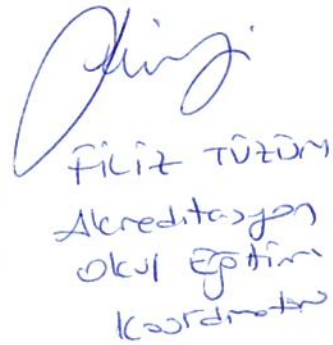 FİLİZ TÜZÜM
Akreditasyon
Okul Eğitim
Koordinatörü